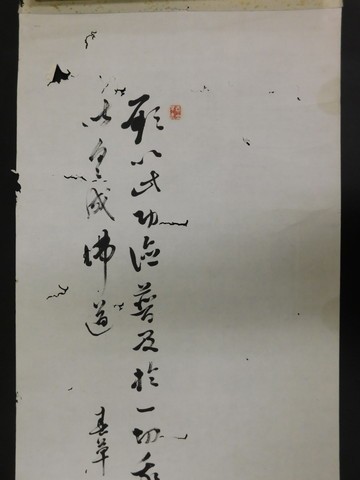 願以此功德普及於一切
皆共成佛道
春草